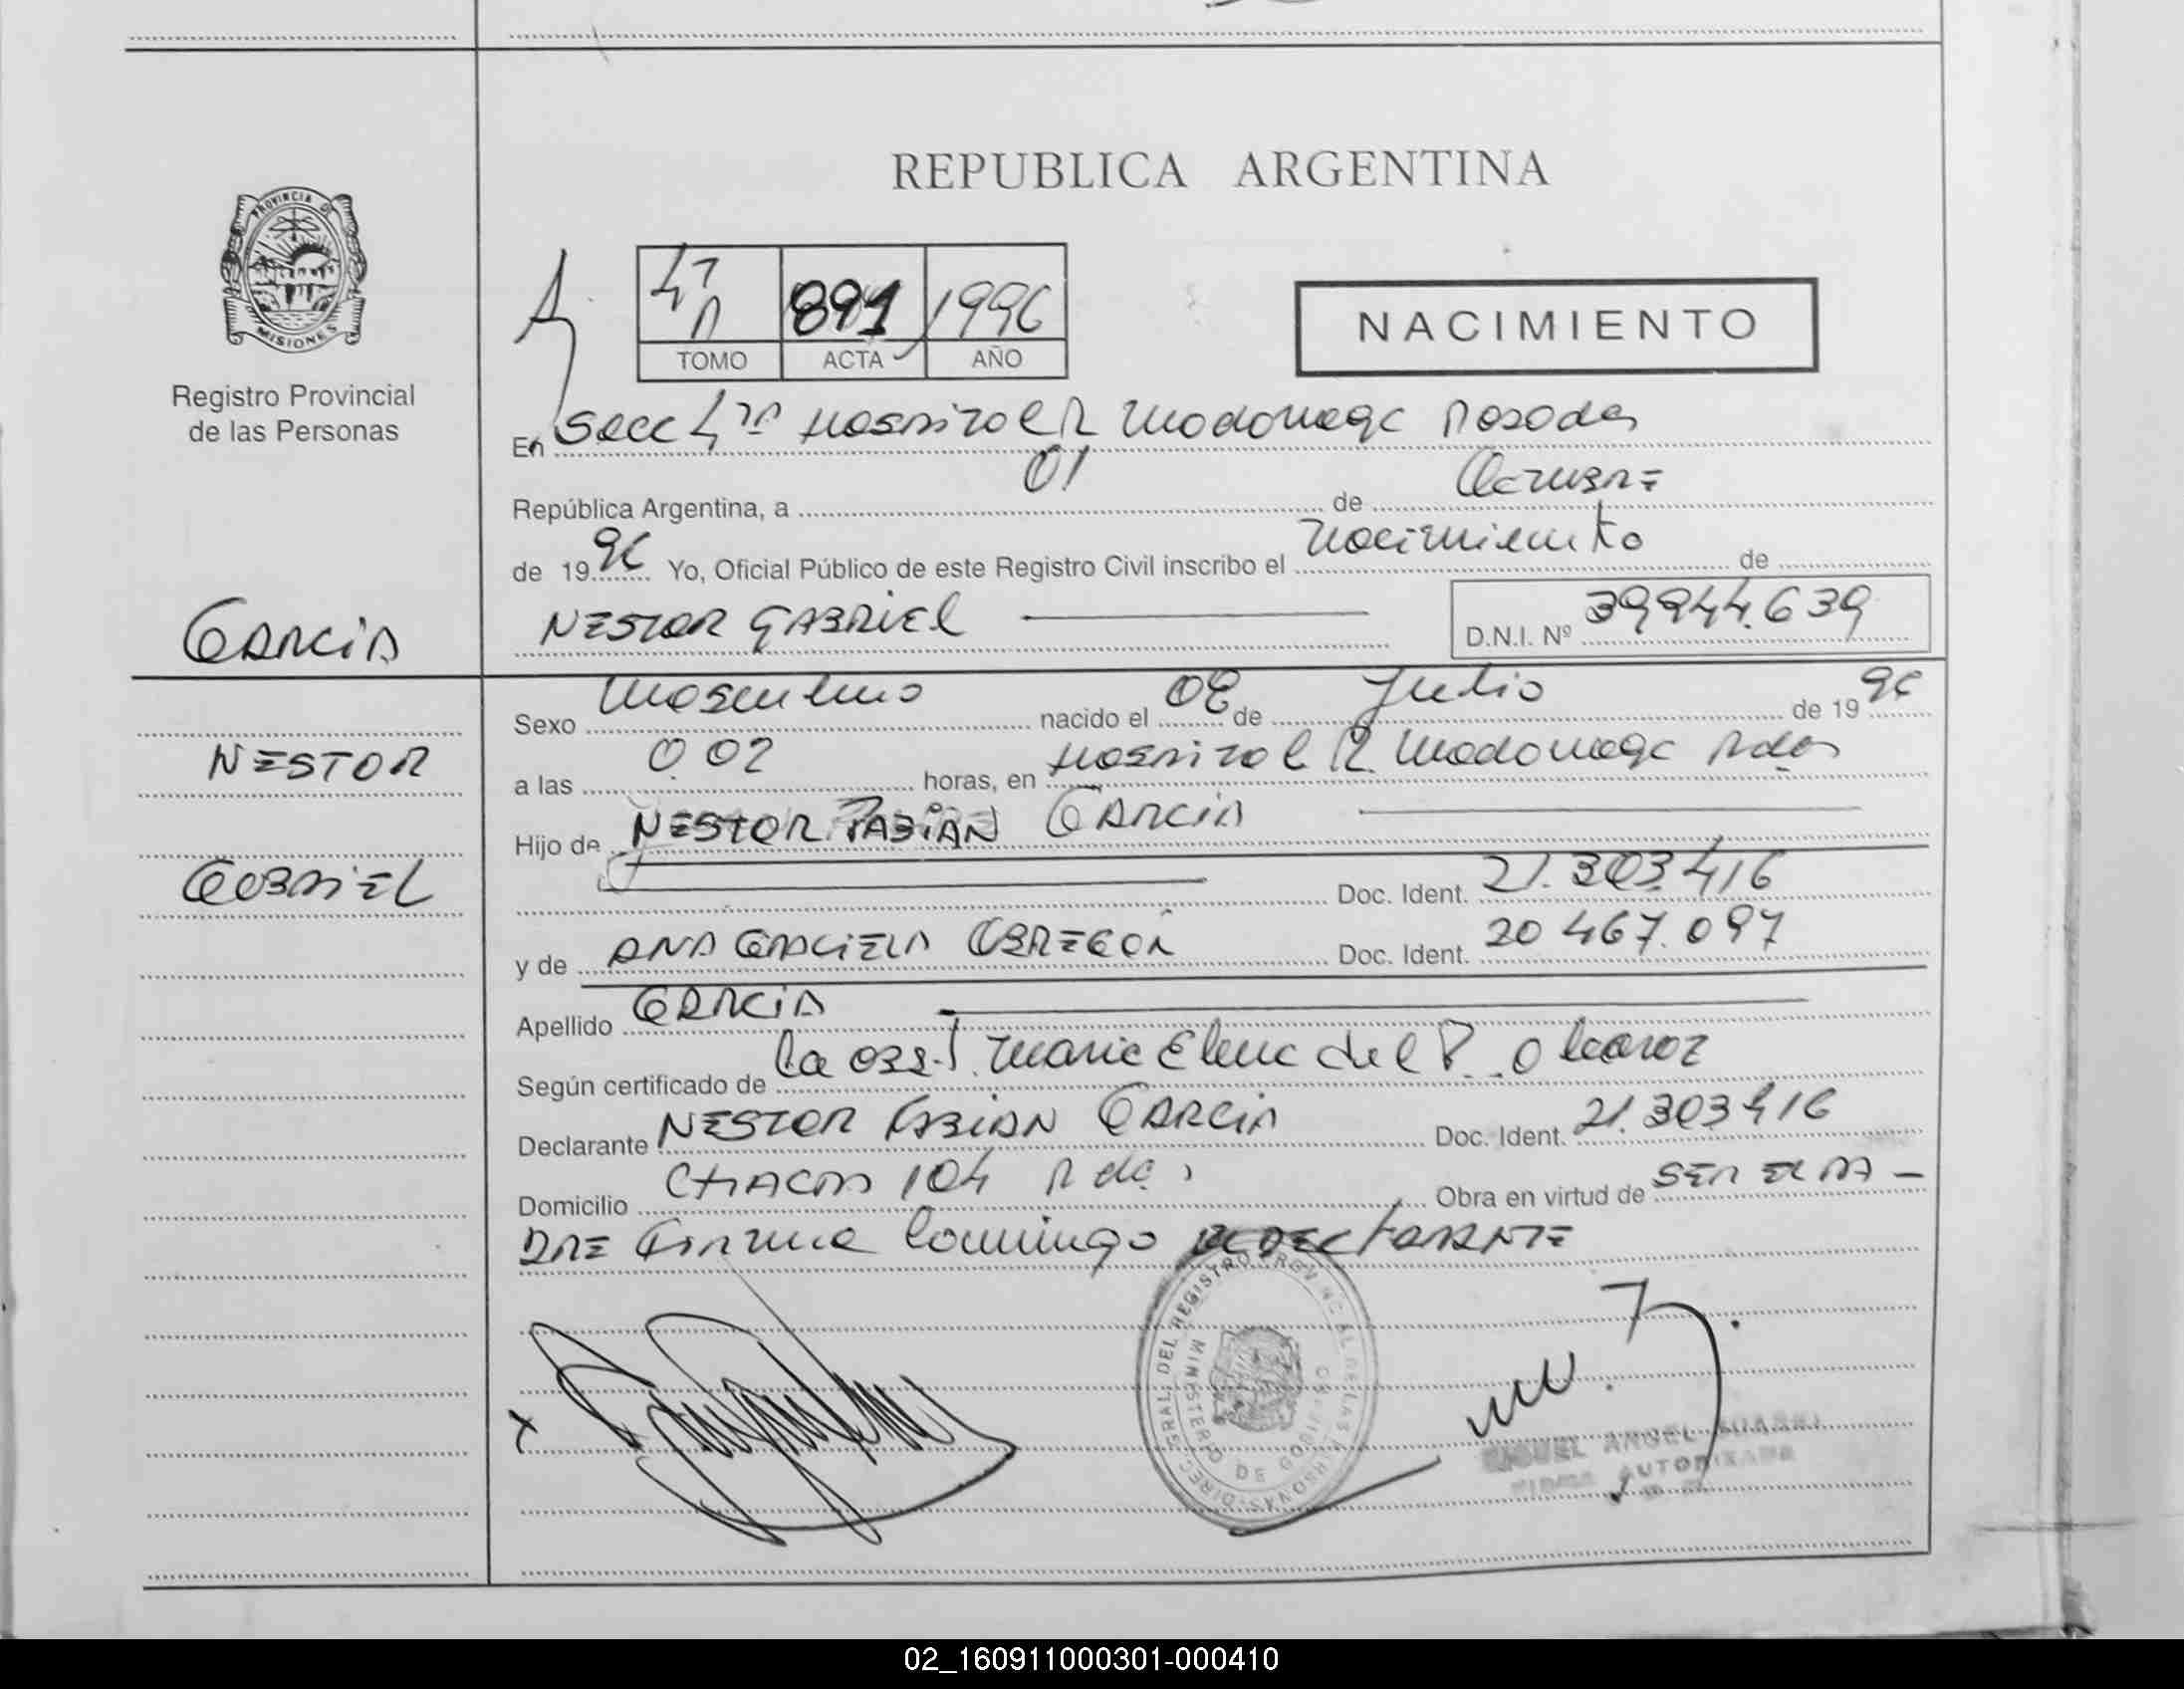 REPUBLICA ARGENTINA
PROVINCIA DE
MISIONES
Registro Provincial
de las Personas
891 1996
TOMO ACTA AÑO
NACIMIENTO
En Secc 4ta Hospital R Madariaga Posadas
República Argentina, a 01 de Octubre
de 1996 Yo, Oficial Público de este Registro Civil inscribo el Nacimiento de
GARCIA
NESTOR GABRIEL D.N.I. Nº 39.944.639
Sexo Masculino nacido el 08 de Julio de 1996
NESTOR
a las 0.02 horas, en Hospital R. Madariaga Pdas
Hijo de NESTOR FABIAN GARCIA
GABRIEL
Doc. Ident. 21.303.416
y de ANA GRACIELA OBREGON Doc. Ident. 20 467.097
Apellido GARCIA
Según certificado de la obst. Maria Elena del P. Alcaraz
Declarante NESTOR FABIAN GARCIA Doc. Ident. 21.303416
Domicilio CHACAS 104 Pdas Obra en virtud de SER EL PA-
DRE Firma Conmigo EL DECLARANTE
DIREC. GRAL. DEL REGISTRO PROVINCIAL DE LAS PERSONAS
MINISTERIO DE GOBIERNO
MIGUEL ANGEL
FIRMA AUTORIZADA
02_160911000301-000410